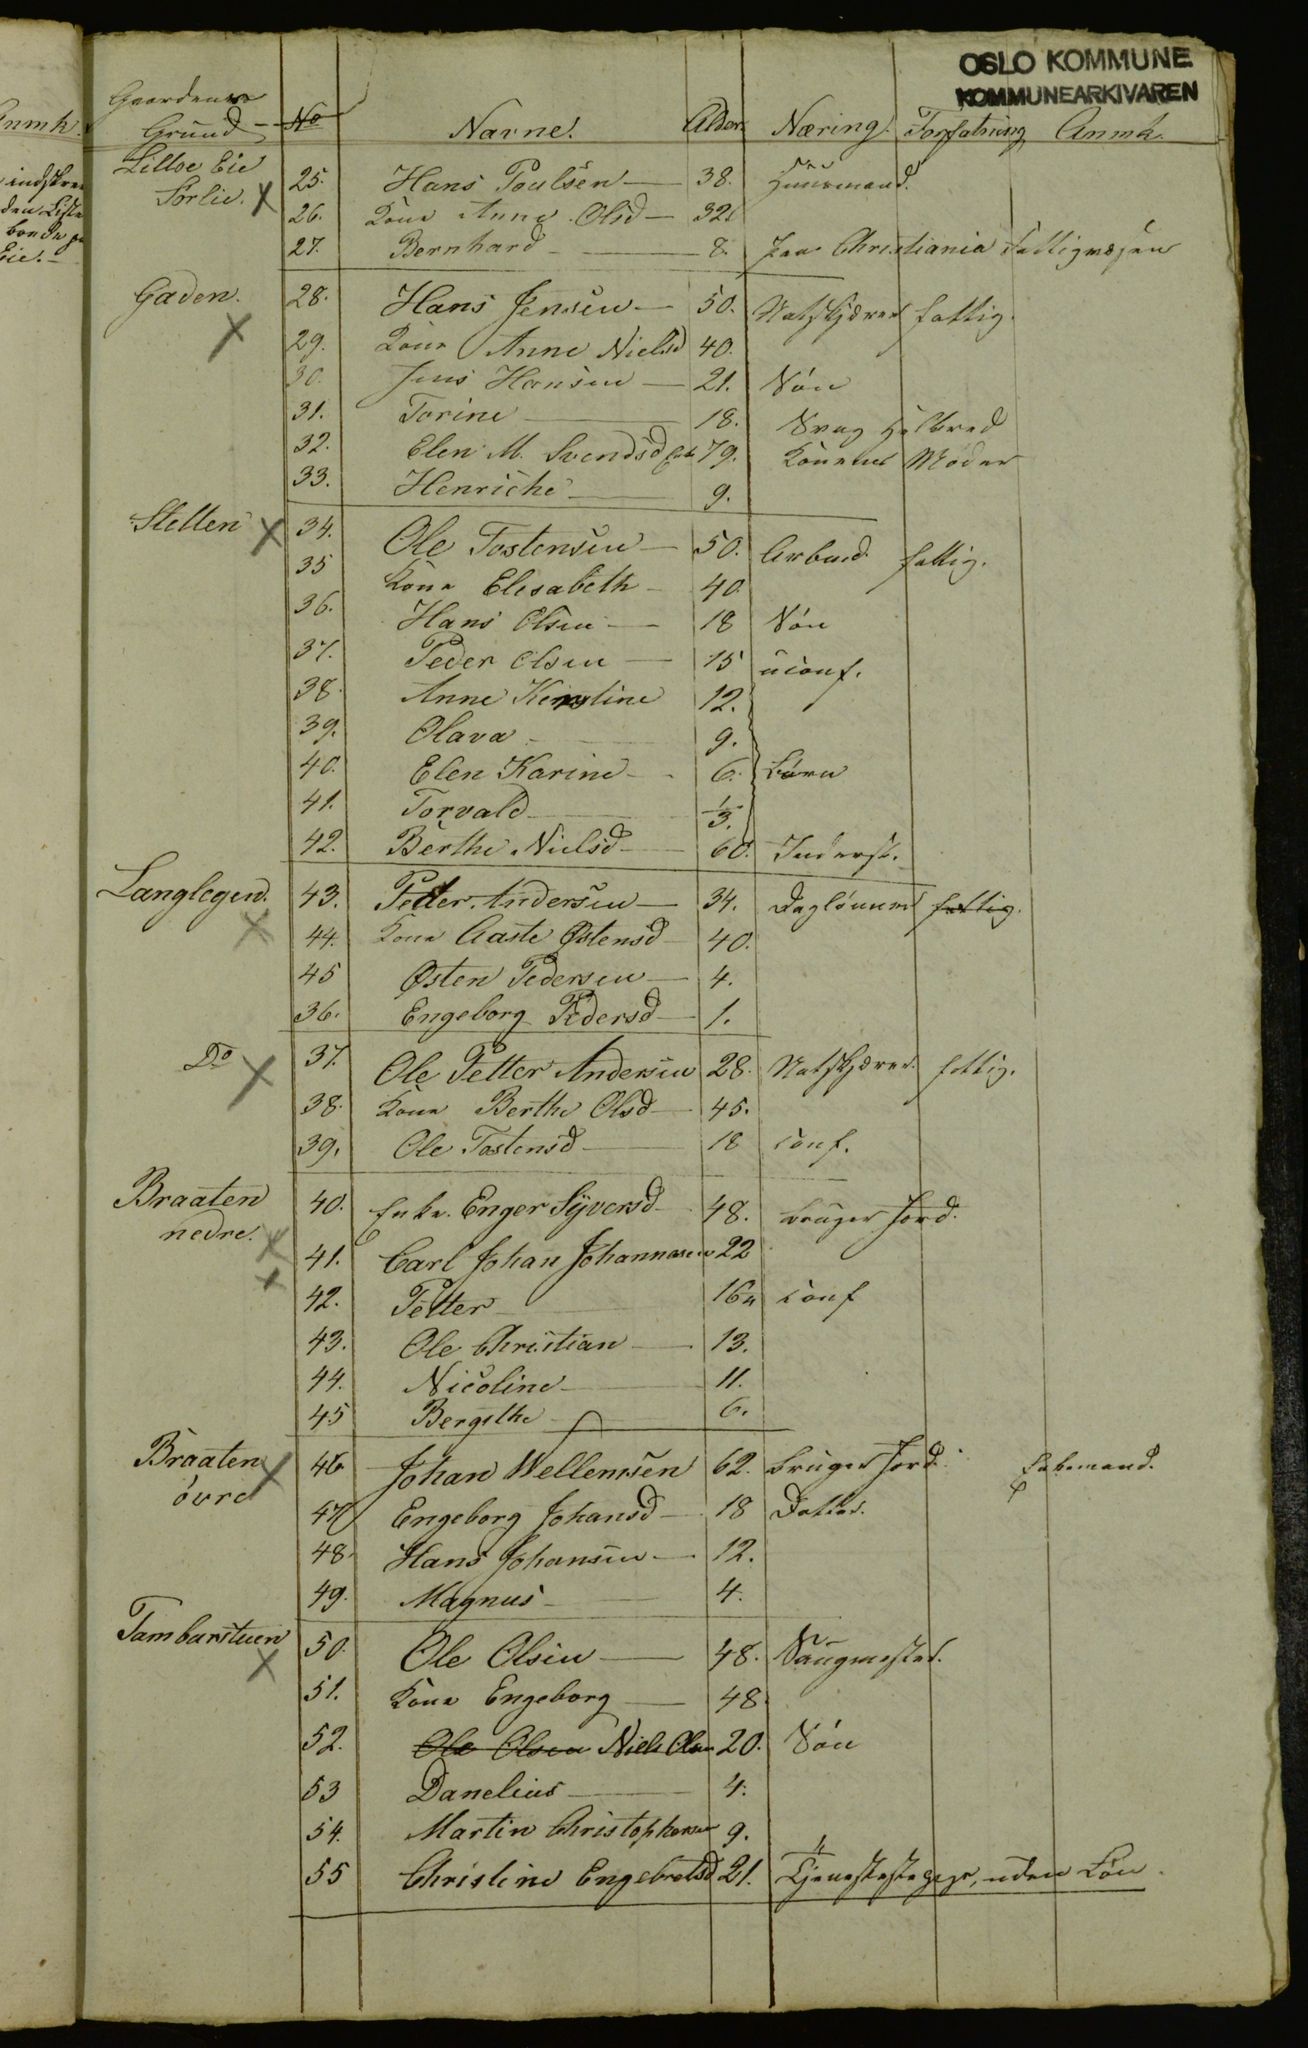 OSLO KOMMUNE
KOMMUNEARKIVAREN
Gaardenes Grund No Navne. Alder. Næring. Forfatning Anmk.
Anmk.
Lilloe Eie
Sørlie. x 25. Hans Poulsen — 38. Huusmand.
26. Kone Anne Olsd — 32.
27. Bernhard — 8. fra Christiania Fattigvæsen
Gaden. x 28. Hans Jensen — 50. Natskjærer fattig.
29. Kone Anne Nielsd 40.
30. Jens Hansen — 21. Søn
31. Torine — 18. Svag Helbred
32. Elen M. Svendsd Enke 79. Konens Moder
33. Henriche — 9.
Sletten x 34. Ole Tostensen — 50. Arbmd. fattig.
35 Kone Elisabeth — 40.
36. Hans Olsen — 18 Søn
37. Peder Olsen — 15 uconf.
38. Anne Kerstine 12.
39. Olava — 9.
40. Elen Karine — 6. Børn
41. Torvald — 1/3.
42. Berthe Nielsd — 60. Inderst.
Langlegen. x 43. Petter Andersen — 34. Daglønner fattig.
44. Kone Aaste Østensd — 40.
45 Østen Pedersen — 4.
36. Engeborg Pedersd — 1.
Do x 37. Ole Petter Andersen 28. Natskjærer fattig.
38. Kone Berthe Olsd — 45.
39. Ole Tostensd — 18 conf.
Braaten 40. Enke Enger Syversd — 48. bruger Jord.
nedre. x
x 41. Carl Johan Johannesen 22
42. Petter — 16 conf
43. Ole Christian — 13.
44. Nicoline — 11.
45 Bergithe — 6.
Braaten x 46 Johan Wellemsen 62. bruger Jord. Enkemand.
øvre 47 Engeborg Johansd — 18 Datter.
48. Hans Johansen — 12.
49. Magnus — 4.
Tambarstuen x 50. Ole Olsen — 48. Saugmester.
51. Kone Engeborg — 48
52. Ole Olsen Niels Olsen 20. Søn
53 Danelius — 4.
54. Martin Christophersen 9.
55 Christine Engebretsd 21. Tjenestepige, uden Løn.